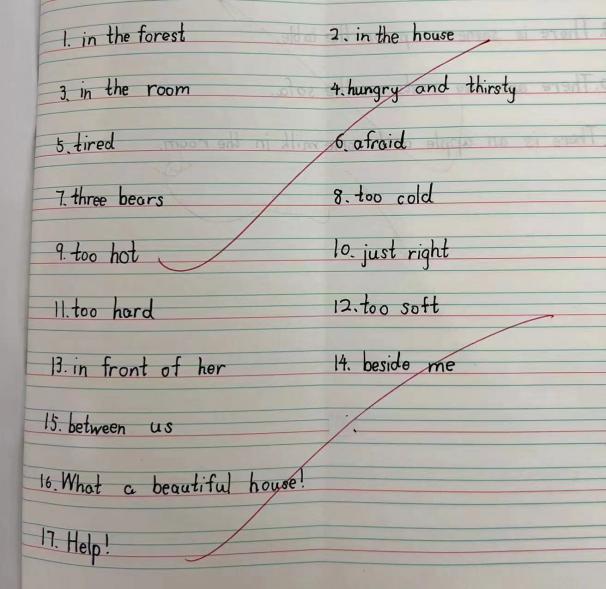 1. in the forest 2. in the house
3. in the room 4. hungry and thirsty
5. tired 6. afraid
7. three bears 8. too cold
9. too hot 10. just right
11. too hard 12. too soft
13. in front of her 14. beside me
15. between us
16. What a beautiful house!
17. Help!